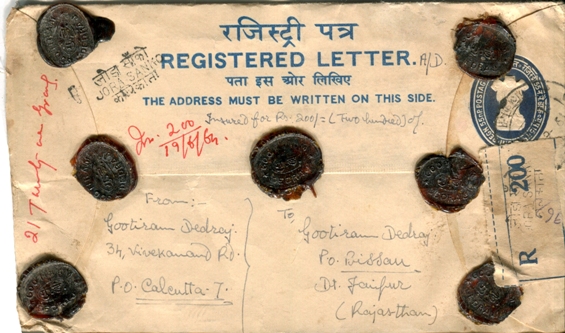 रजिस्ट्री पत्र
REGISTERED LETTER. A/D.
पता इस ओर लिखिए
THE ADDRESS MUST BE WRITTEN ON THIS SIDE.
Insured for Rs. 200/= (Two hundred) only
JORASANKO
In. 200
19/6/64
21
From:-
Gootiram Dedraj.
34, Vivekanand Rd.
P.O. Calcutta-7.
To,
Gootiram Dedraj
Po. Bissau
Dt. Jaipur
(Rajasthan)
R 200